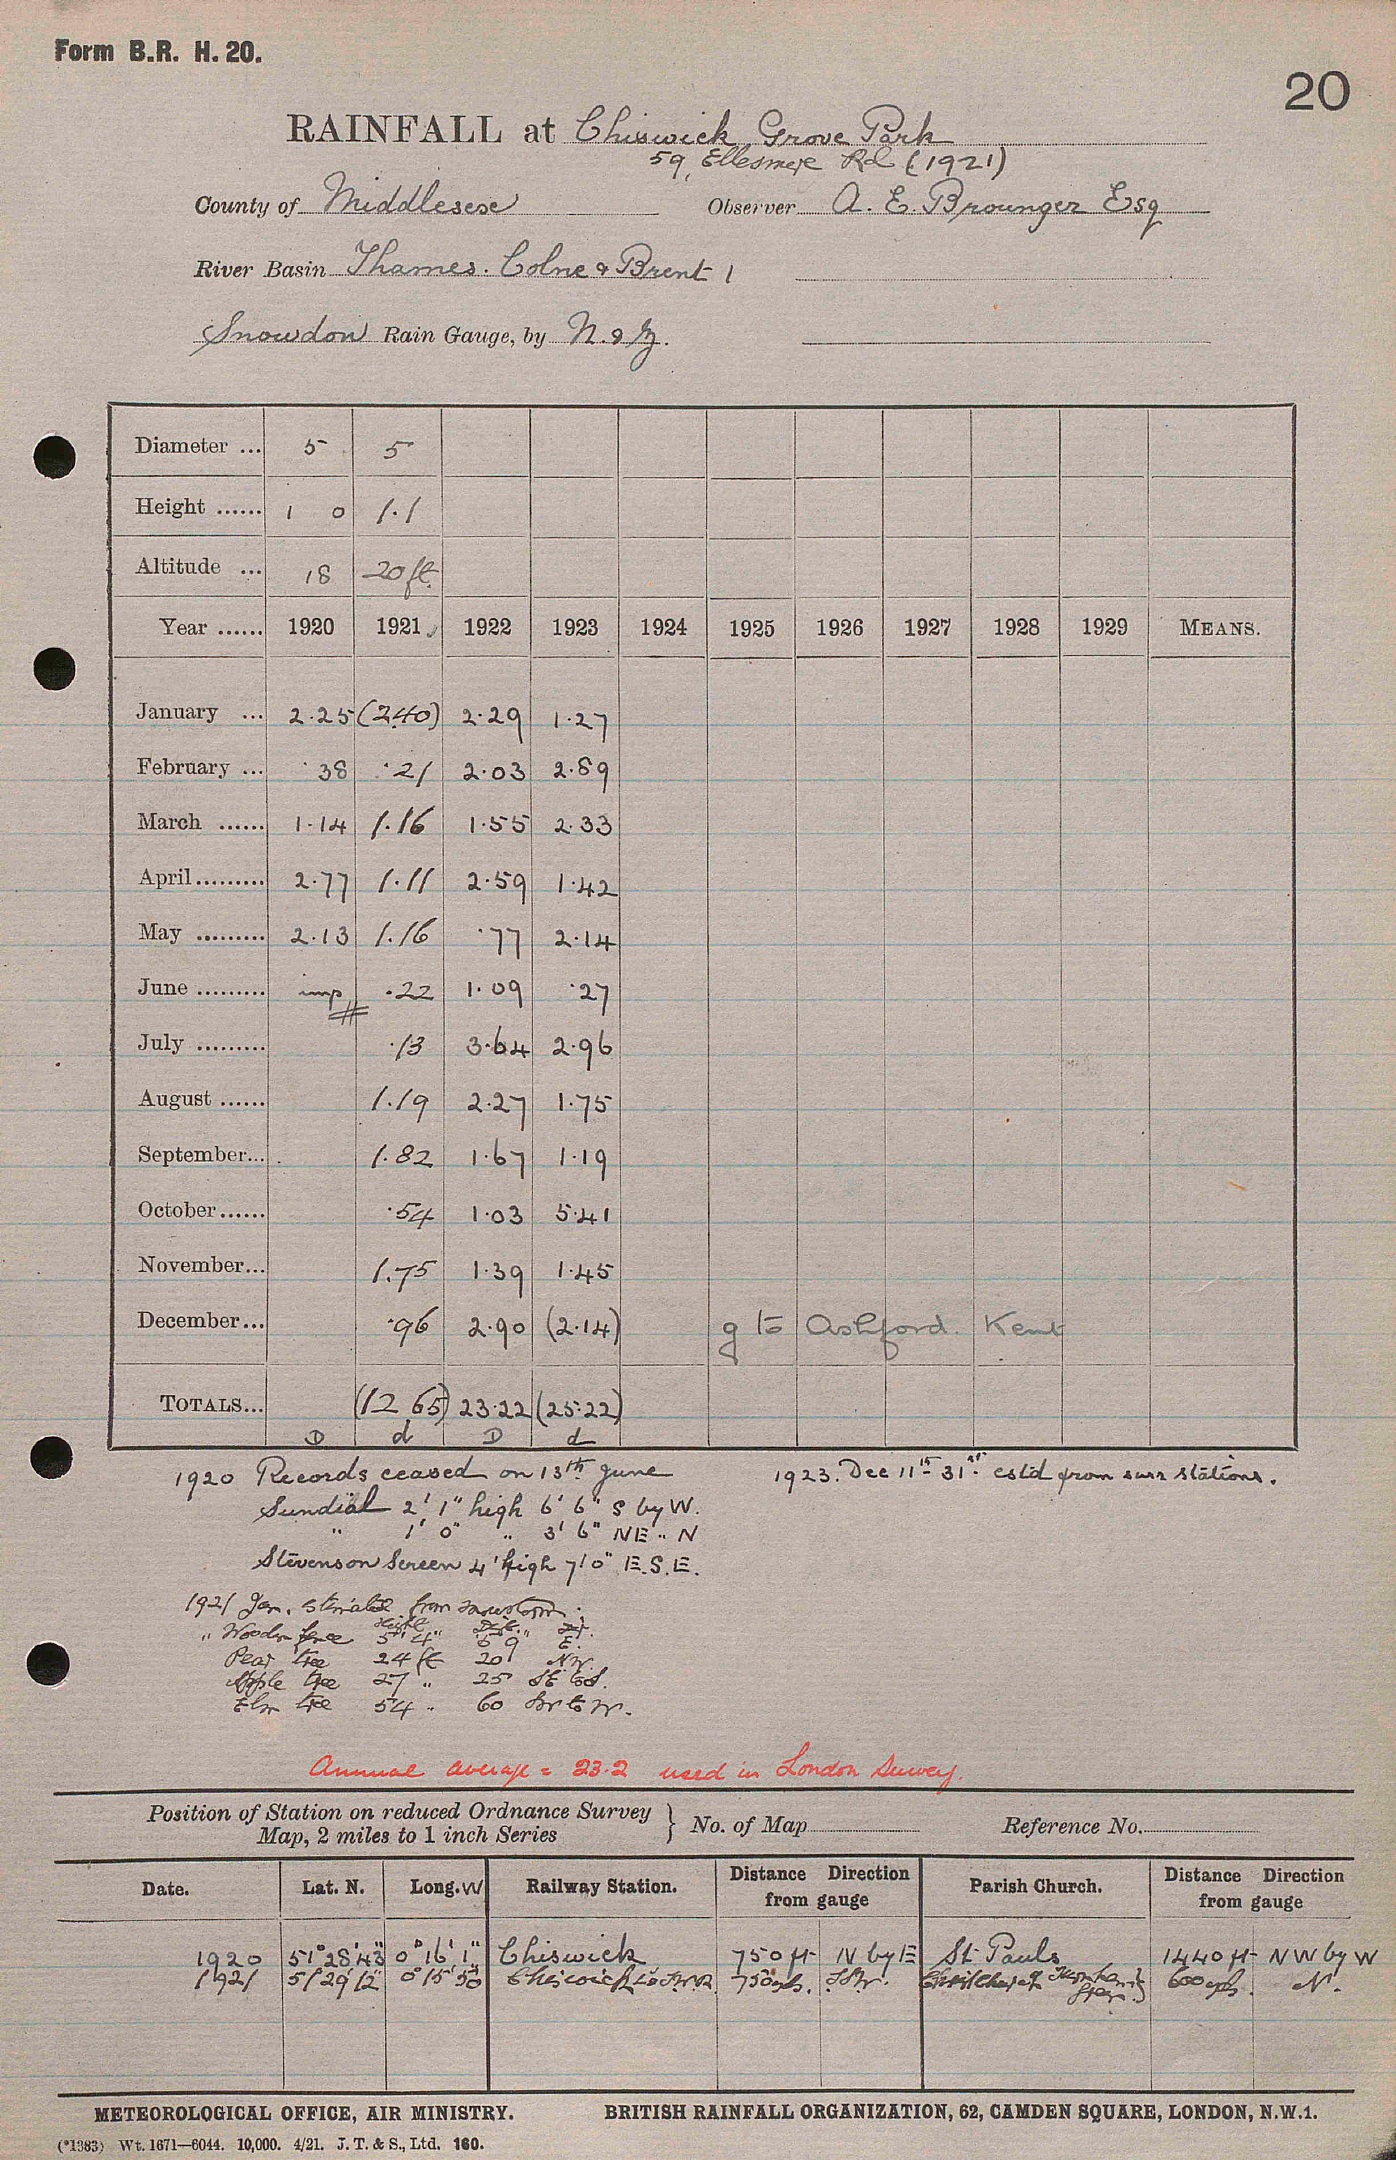 Form B.R. H. 20.
20
RAINFALL at Chiswick Grove Park
59, Ellesmere Rd (1921)
County of Middlesex Observer A. E. Brounger Esq
River Basin Thames. Colne & Brent 1
Snowdon Rain Gauge, by N. & Z.
Diameter ... 5 5
Height ...... 1 0 1.1
Altitude ... 18 20 ft.
Year ...... 1920 1921 1922 1923 1924 1925 1926 1927 1928 1929 MEANS.
January ... 2.25 (2.40) 2.29 1.27
February ... .38 .21 2.03 2.89
March ...... 1.14 1.16 1.55 2.33
April ......... 2.77 1.11 2.59 1.42
May ......... 2.13 1.16 .77 2.14
June ......... imp .22 1.09 .27
July ......... .13 3.64 2.96
August ...... 1.19 2.27 1.75
September... 1.82 1.67 1.19
October...... .54 1.03 5.41
November... 1.75 1.39 1.45
December... .96 2.90 (2.14) g to Ashford. Kent
TOTALS... (12 65) 23.22 (25.22)
D d D d
1920 Records ceased on 13th June 1923. Dec 11th-31st est'd from surr stations.
Sundial 2' 1" high 6' 6" S by W.
" 1' 0" " 3' 6" NE " N
Stevenson Screen 4' high 7' 0" E.S.E.
1921 Jan. from
" Wooden fence 5' 4" 6 9 E.
Pear tree 24 ft 20' NW.
Apple tree 27 " 25 SE to S.
Elm tree 54 " 60 SW to W.
Annual average = 23.2 used in London Survey.
Position of Station on reduced Ordnance Survey Map, 2 miles to 1 inch Series } No. of Map Reference No.
Date. Lat. N. Long. W Railway Station. Distance Direction from gauge Parish Church. Distance Direction from gauge
1920 51° 28' 43" 0° 16' 1" Chiswick 750 ft N by E St Pauls 1440 ft NW by W
1921 51 29 12 0° 15' 50" Chiswick 750 yds. SSW. Christchurch Turnham Green 600 yds. N.
METEOROLOGICAL OFFICE, AIR MINISTRY. BRITISH RAINFALL ORGANIZATION, 62, CAMDEN SQUARE, LONDON, N.W.1.
(*1383) Wt. 1671—6044. 10,000. 4/21. J. T. & S., Ltd. 160.